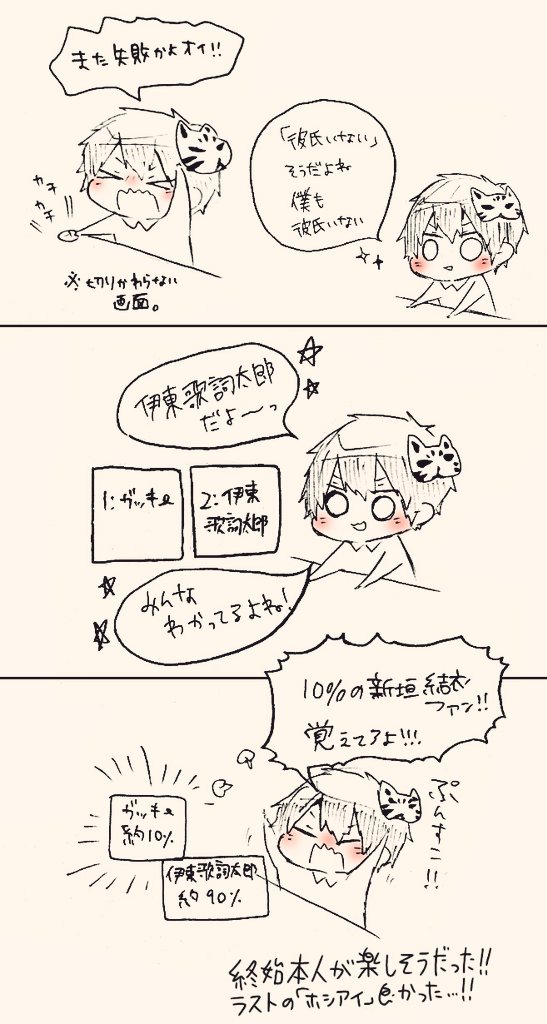 また失敗かよオイ!!
カチ
カチ
※切りかわらない
画面。
「彼氏いない」
そうだよね
僕も
彼氏いない
伊東歌詞太郎
だよ〜っ
1:ガッキー
2:伊東
歌詞太郎
みんな
わかってるよね!
10%の新垣結衣
ファン!!
覚えてろよ!!!
ガッキー
約10%
伊東歌詞太郎
約90%
ぷんすこ!!
終始本人が楽しそうだった!!
ラストの「ホシアイ」良かった…!!